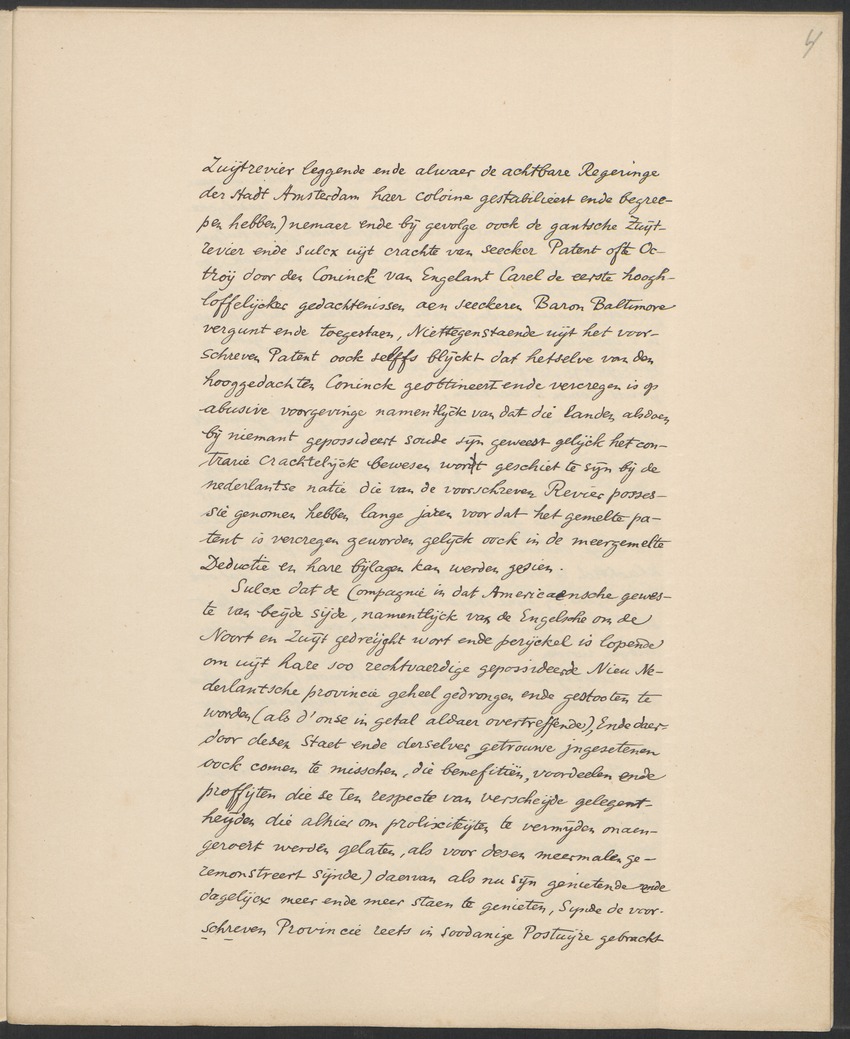 4
Zuijtrevier leggende ende alwaer de achtbare Regeringe
der Stadt Amsterdam haer coloine gestabilieert ende begree-
pen hebben) nemaer ende bij gevolge oock de gantsche Zuijt-
revier ende sulcx uijt crachte van seecker Patent ofte Oc-
troij door den Coninck van Engelant Carel de eerste hoogh-
loffelijcker gedachtenissen aen seeckeren Baron Baltimore
vergunt ende toegestaen, Niettegenstaende uijt het voor-
schreven Patent oock selffs blijckt dat hetselve van den
hooggedachten Coninck geobtineert ende vercregen is op
abusive voorgevinge namentlijck van dat die landen alsdoen
bij niemant gepossideert soude sijn geweest gelijck het con-
trarie crachtelijck bewesen wort geschiet te sijn bij de
nederlantse natie die van de voorschreven Revier posses-
sie genomen hebben lange jaren voor dat het gemelte pa-
tent is vercregen geworden gelijck oock in de meergemelte
Deductie en hare bijlagen kan werden gesien.
Sulcx dat de Compagnie in dat Americaensche gewes-
te van beijde sijde, namentlijck van de Engelsche om de
Noort en Zuijt gedreijght wort ende perijckel is lopende
om uijt hare soo rechtvaerdige gepossideerde Nieu Ne-
derlantsche provincie geheel gedrongen ende gestooten te
worden (als d'onse in getal aldaer overtreffende), Ende daer-
door desen Staet ende derselver getrouwe jngesetenen
oock comen te misschen, die benefitiën, voordeelen ende
proffijten die se ten respecte van verscheijde gelegent-
heijden die alhier om prolixiteijten te vermijden onaen-
geroert werden gelaten, als voor desen meermalen ge-
remonstreert sijnde) daervan als nu sijn genietende ende
dagelijcx meer ende meer staen te genieten, Sijnde de voor-
schreven Provincie reets in soodanige Postuijre gebracht